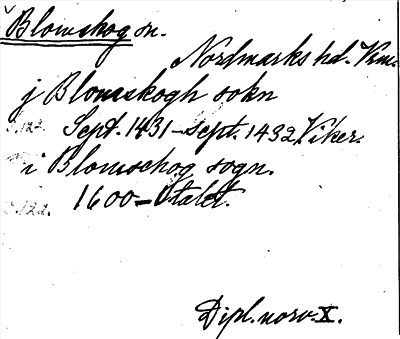 Blomskog sn.
Nordmarks hd. Vrm.
j Blomskogh sokn
s.122. Sept. 1431–sept. 1432 Viker.
i Blomschog sogn.
s.122. 1600–talet.
Dipl. norv. X.